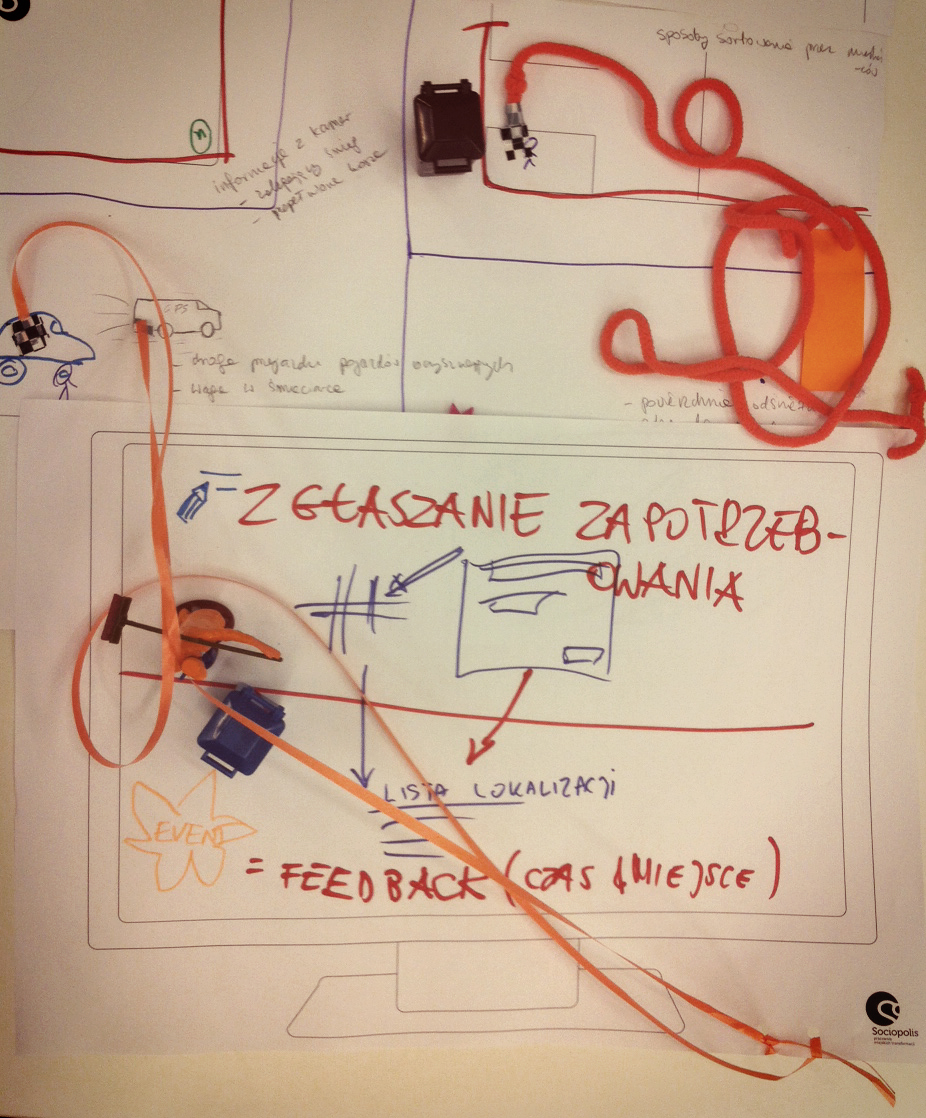 sposoby sortowania przez mieszkań
-ców
n
informacje z kamer
- zalegający śnieg
- przepełnione kosze
GPS
- droga przejazdu pojazdów
- waga w śmieciarce
- powierzchnie
ZGŁASZANIE ZAPOTRZEB-
OWANIA
LISTA LOKALIZACJI
EVENT
= FEEDBACK (CZAS & MIEJSCE)
Sociopolis